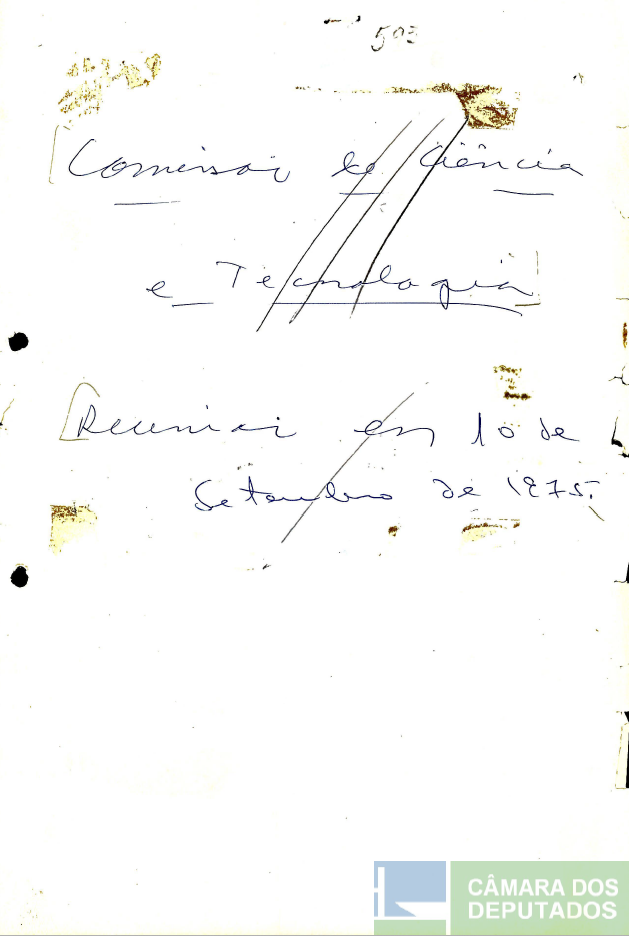 503
Comissão de Ciência
e Tecnologia
Reunião em 10 de
Setembro de 1975.
CÂMARA DOS
DEPUTADOS